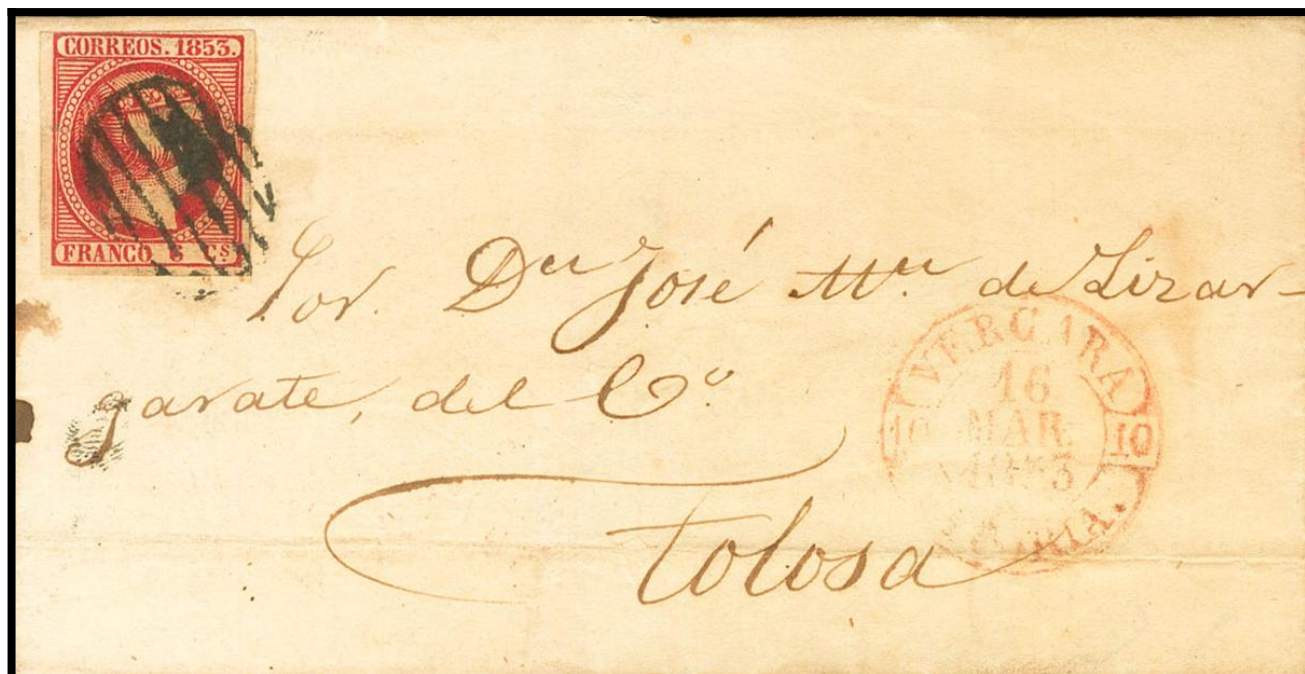 CORREOS. 1853.
FRANCO 6 Cs.
Sor. Dn José Ma. de Lizar-
garate, del Co.
Tolosa
VERGARA
16
MAR
1853
10 10